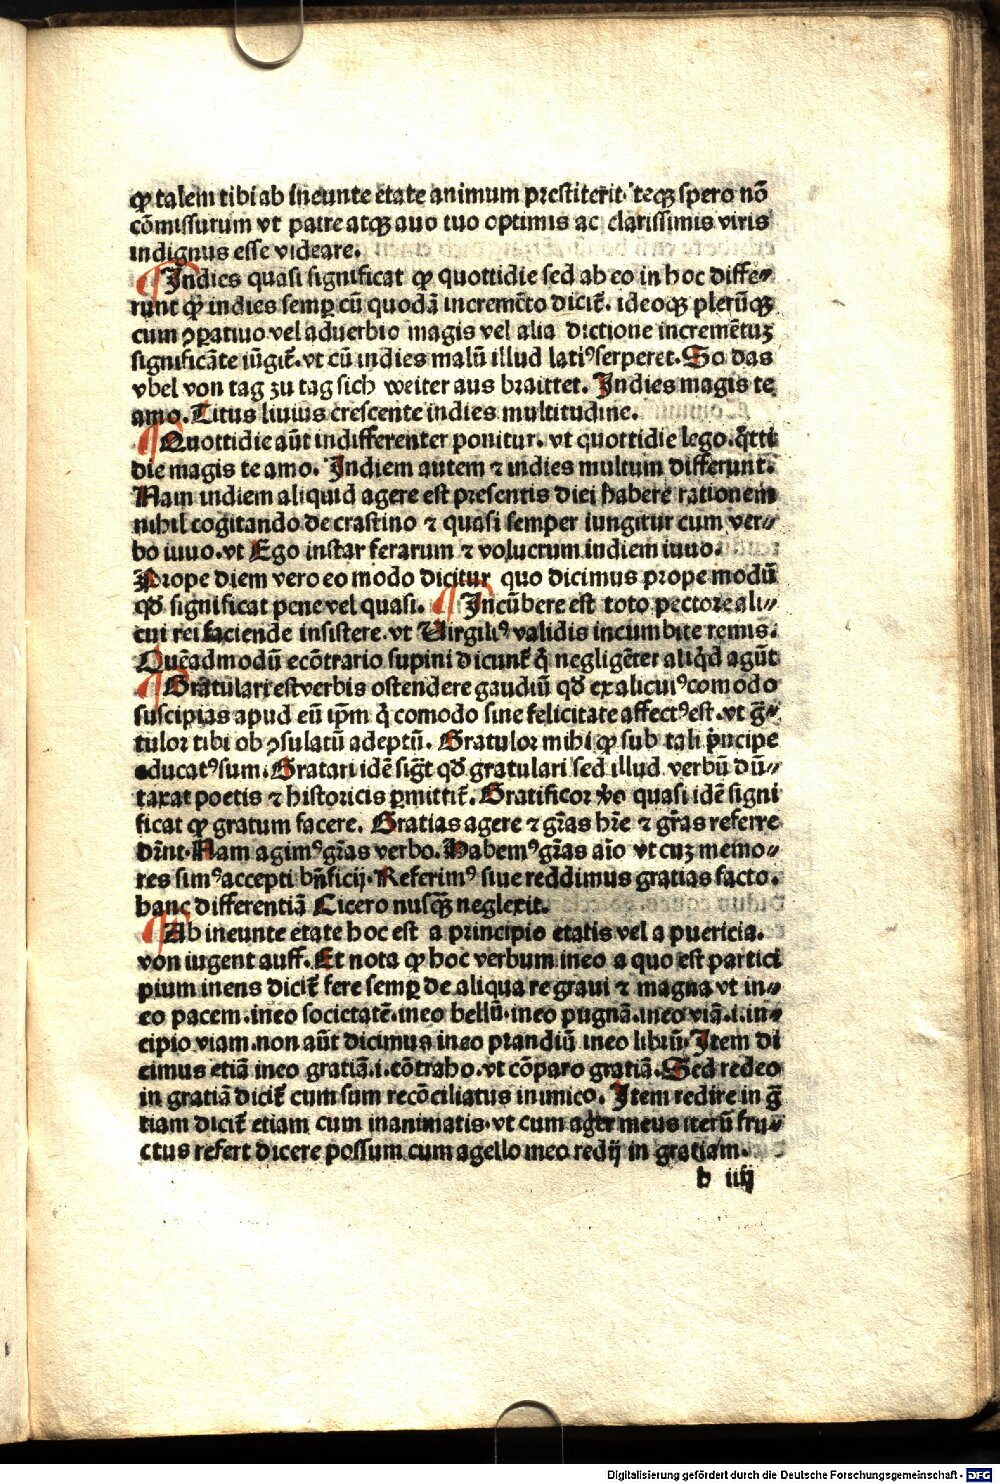 ꝙ talem tibi ab ineunte etate animum prestiterit· teqꝫ spero nō
cōmissurum vt patre atqꝫ auo tuo optimis ac clarissimis viris
indignus esse videare.
Indies quasi significat ꝙ quottidie sed ab eo in hoc diffe⸗
runt ꝙ indies semꝑ cū quodā incremēto dicit᷑. ideoqꝫ plerūqꝫ
cum ꝯꝑatiuo vel aduerbio magis vel alia dictione incremētuꝫ
significāte iūgit᷑. vt cū indies malū illud latiꝰ serperet. So das
vbel von tag zu tag sich weiter aus braittet. Indies magis te
amo. Titus liuius crescente indies multitudine.
Quottidie aūt indifferenter ponitur. vt quottidie lego. q̄tti
die magis te amo. Indiem autem ⁊ indies multum differunt.
Nam indiem aliquid agere est presentis diei habere rationem
nihil cogitando de crastino ⁊ quasi semper iungitur cum ver⸗
bo iuuo. vt Ego instar ferarum ⁊ volucrum indiem iuuo.
Prope diem vero eo modo dicitur quo dicimus prope modū
qđ significat pene vel quasi. Incūbere est toto pectore ali⸗
cui rei faciende insistere. vt Uirgiliꝰ validis incumbite remis.
Quēadmodū ecōtrario supini dicunt᷑ q̇ negligēter aliq̇d agūt
Gratulari est verbis ostendere gaudiū qđ ex alicuiꝰ comodo
suscipias apud eū ip̄m q̇ comodo sine felicitate affectꝰ est. vt ḡ⸗
tulor tibi ob ꝯsulatū adeptū. Gratulor mihi ꝙ sub tali pͥncipe
educatꝰ sum. Gratari idē sigt᷑ qđ gratulari sed illud verbū dū⸗
taxat poetis ⁊ historicis ꝑmittit᷑. Gratificor v̄o quasi idē signi
ficat ꝙ gratum facere. Gratias agere ⁊ gr̄as hr̄e ⁊ gr̄as referre
dr̄nt. Nam agimꝰ gr̄as verbo. Habemꝰ gr̄as aīo vt cuꝫ memo⸗
res simꝰ accepti bn̄ficij. Referimꝰ siue reddimus gratias facto.
hanc differentiā Cicero nusqꝫ̄ neglexit.
Ab ineunte etate hoc est a principio etatis vel a puericia.
von iugent auff. Et nota ꝙ hoc verbum ineo a quo est partici
pium inens dicit᷑ fere semꝑ de aliqua re graui ⁊ magna vt in⸗
eo pacem. ineo societatē. ineo bellū. ineo pugnā. ineo viā. i. in⸗
cipio viam. non aūt dicimus ineo prandiū ineo librū. Item di
cimus etiā ineo gratiā. i. cōtraho. vt cōparo gratiā. Sed redeo
in gratiā dicit᷑ cum sum recōciliatus inimico. Item redire in ḡ
tiam dicit᷑ etiam cum inanimatis. vt cum ager meus iterū fru⸗
ctus refert dicere possum cum agello meo redij in gratiam.
b iiij
Digitalisierung gefördert durch die Deutsche Forschungsgemeinschaft - DFG